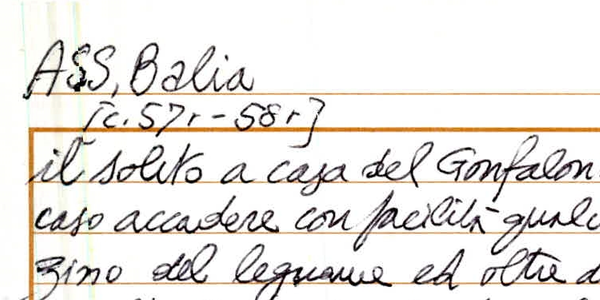 ASS, Balia
[c. 57r - 58r]
il solito a casa del Gonfalon
caso accadere con facilità qualc
zino del legname ed oltre a